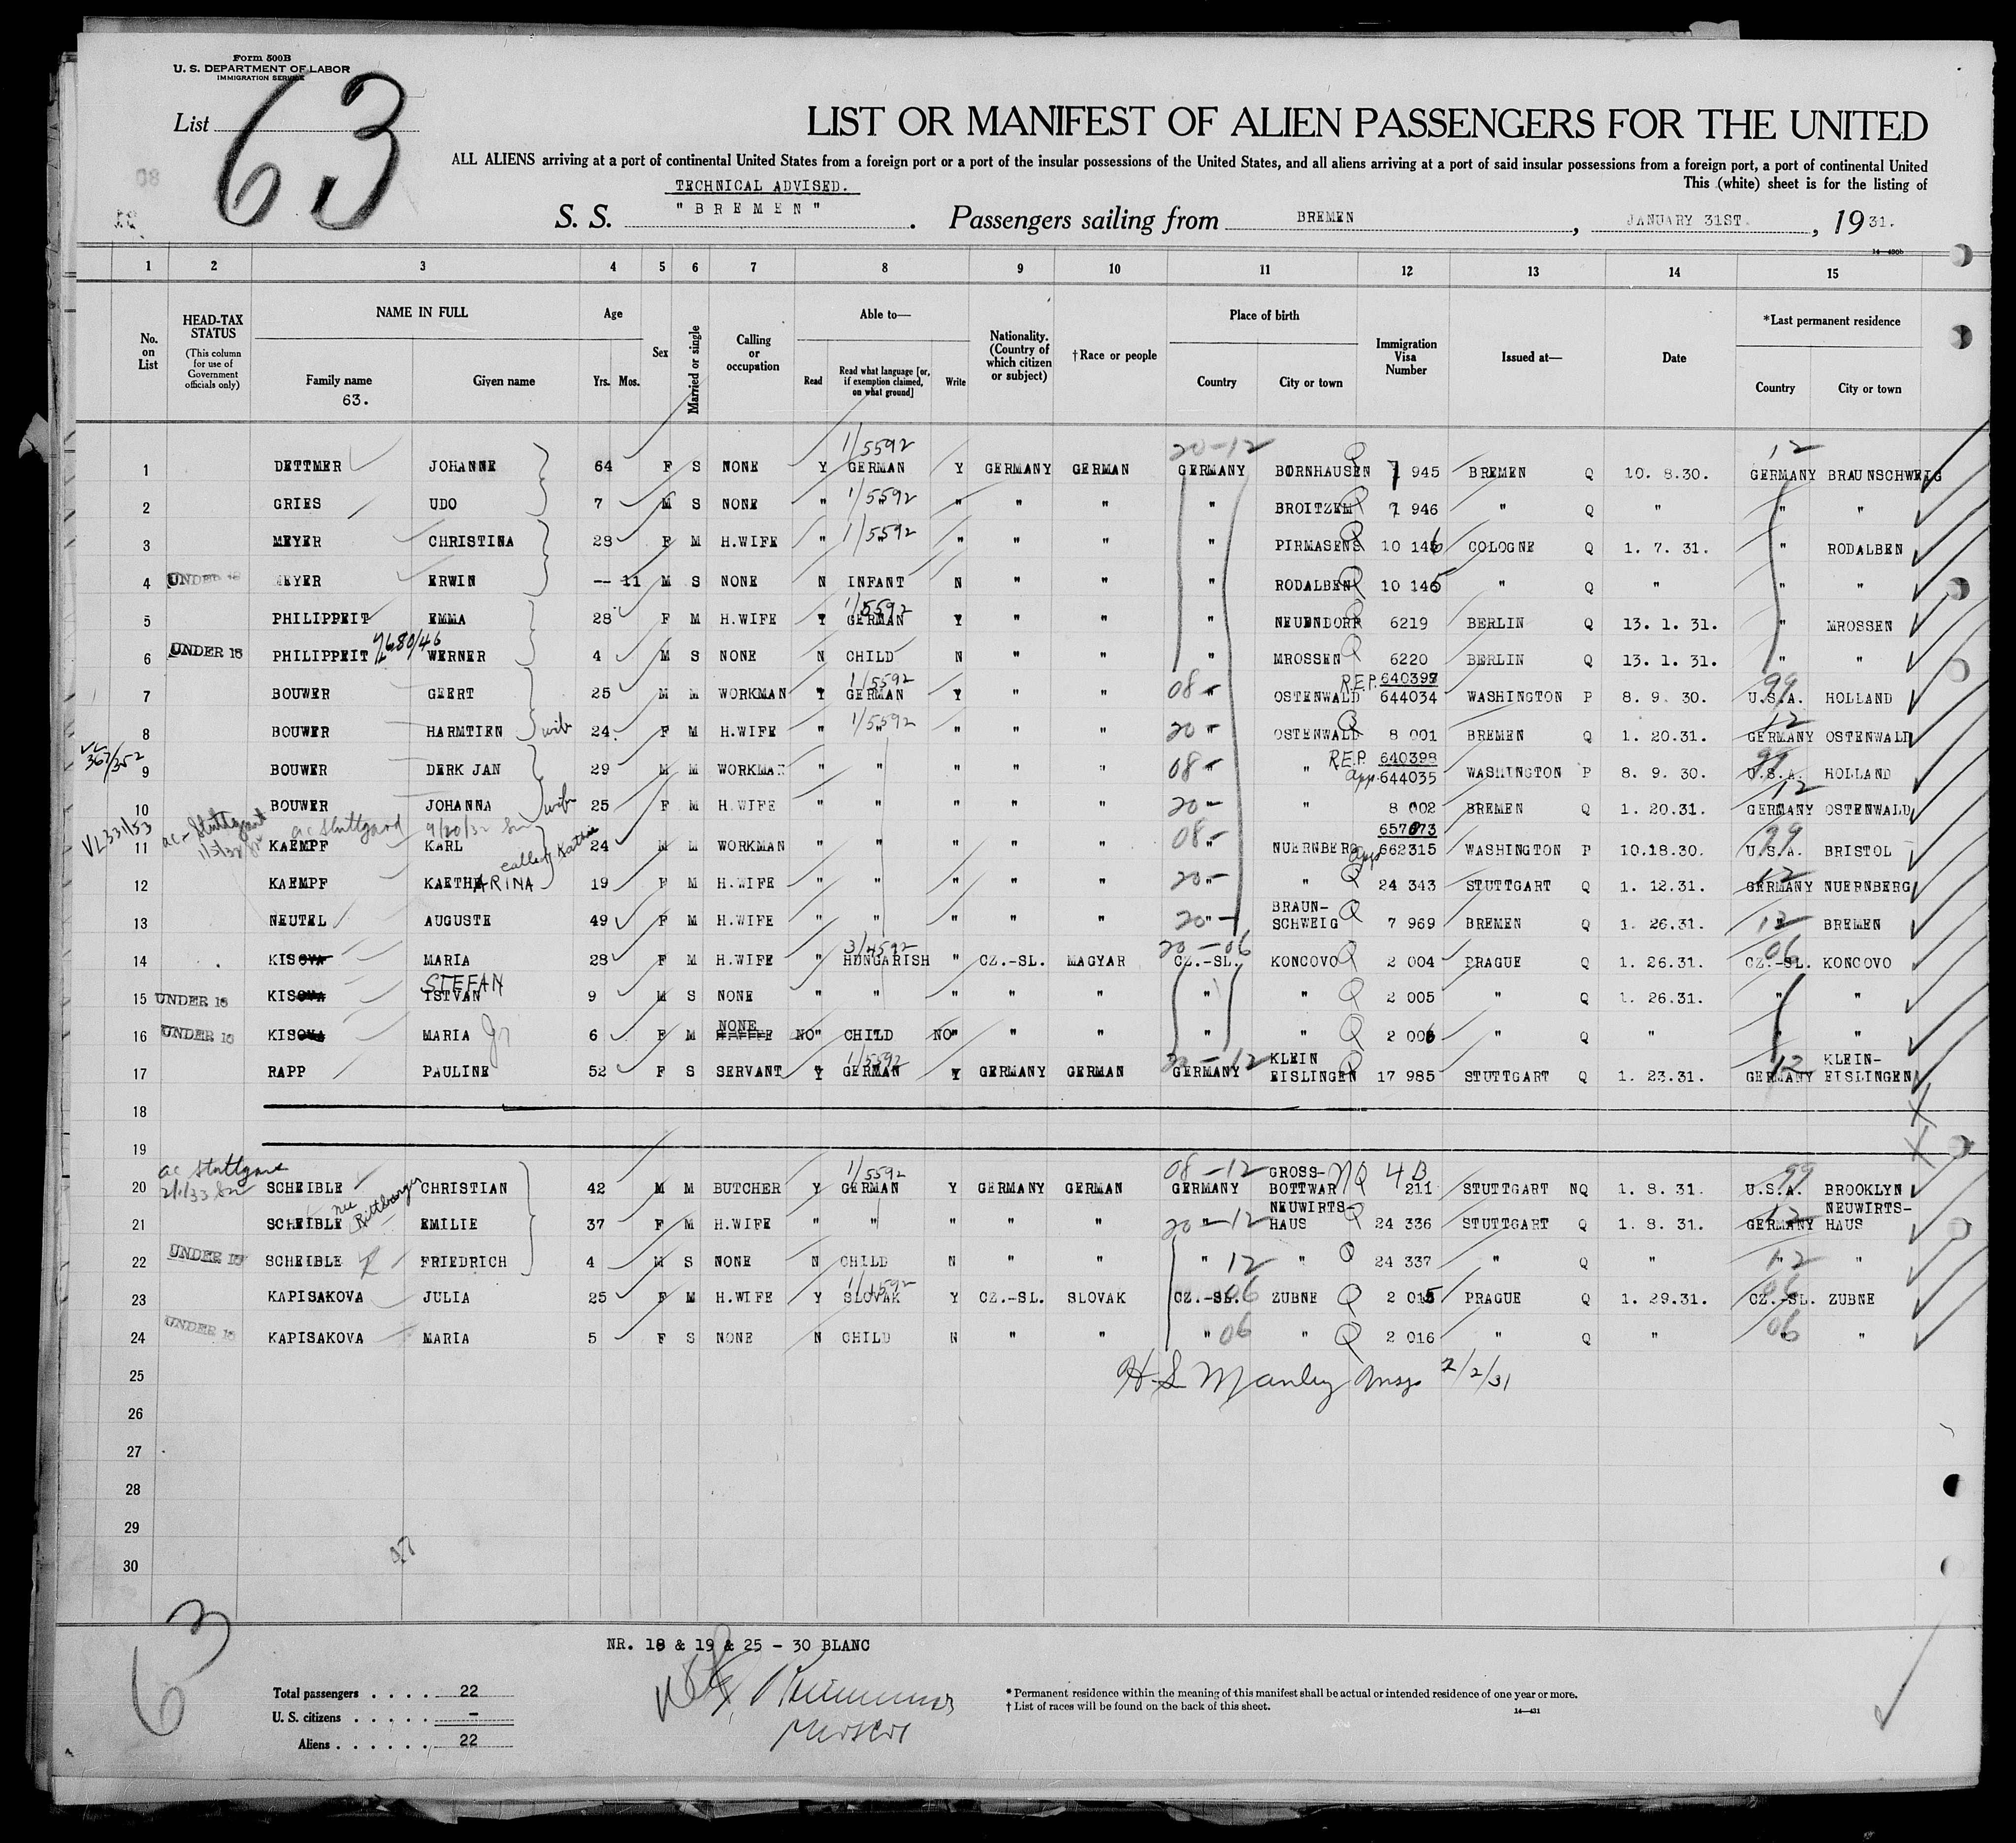 Form 500B
U. S. DEPARTMENT OF LABOR
IMMIGRATION SERVICE
List 63
LIST OR MANIFEST OF ALIEN PASSENGERS FOR THE UNITED
ALL ALIENS arriving at a port of continental United States from a foreign port or a port of the insular possessions of the United States, and all aliens arriving at a port of said insular possessions from a foreign port, a port of continental United
This (white) sheet is for the listing of
TECHNICAL ADVISED.
S. S. "BREMEN". Passengers sailing from BREMEN, JANUARY 31ST., 1931.
14—430b
1 2 3 4 5 6 7 8 9 10 11 12 13 14 15
No. on List
HEAD-TAX STATUS (This column for use of Government officials only)
NAME IN FULL Family name Given name
63.
Age Yrs. Mos.
Sex
Married or single
Calling or occupation
Able to— Read Read what language [or, if exemption claimed, on what ground] Write
Nationality. (Country of which citizen or subject)
†Race or people
Place of birth Country City or town
Immigration Visa Number
Issued at—
Date
*Last permanent residence Country City or town
1/5592 20-12 12
1 DETTMER JOHANNE 64 F S NONE Y GERMAN Y GERMANY GERMAN GERMANY BORNHAUSEN Q 7 945 BREMEN Q 10. 8.30. GERMANY BRAUNSCHWEIG
2 GRIES UDO 7 M S NONE " 1/5592 " " " " BROITZEM Q 7 946 " Q " " "
3 MEYER CHRISTINA 28 F M H.WIFE " 1/5592 " " " " " PIRMASENS Q 10 146 COLOGNE Q 1. 7. 31. " RODALBEN
4 UNDER 16 MEYER ERWIN -- 11 M S NONE N INFANT N " " " RODALBEN Q 10 145 " Q " " "
5 PHILIPPEIT EMMA 28 F M H.WIFE Y 1/5592 GERMAN Y " " " NEUENDORF Q 6219 BERLIN Q 13. 1. 31. " MROSSEN
6 UNDER 16 PHILIPPEIT WERNER 4 M S NONE N CHILD N " " " MROSSEN Q 6220 BERLIN Q 13. 1. 31. " "
7 BOUWER GEERT 25 M M WORKMAN Y 1/5592 GERMAN Y " " 08- " OSTENWALD R.E.P. 640397 644034 WASHINGTON P 8. 9. 30. 99 U.S.A. HOLLAND
8 BOUWER HARMTIEN wife 24 F M H.WIFE " 1/5592 " " " " 20- " OSTENWALD Q 8 001 BREMEN Q 1. 20.31. 12 GERMANY OSTENWALD
9 BOUWER DERK JAN 29 M M WORKMAN " " " " " 08- " " R.E.P. 640398 app 644035 WASHINGTON P 8. 9. 30. 99 U.S.A. HOLLAND
10 BOUWER JOHANNA wife 25 F M H.WIFE " " " " " 20- " " 8 002 BREMEN Q 1. 20.31. 12 GERMANY OSTENWALD
VL331/53 ac-Stuttgart ac Stuttgard 9/20/32
11 KAEMPF KARL 24 M M WORKMAN " " " " " 08- " NUERNBERG 657073 app 662315 WASHINGTON P 10.18.30. 99 U.S.A. BRISTOL
12 KAEMPF KAETHARINA 19 F M H.WIFE " " " " " 20- " " Q 24 343 STUTTGART Q 1. 12.31. 12 GERMANY NUERNBERG
13 NEUTEL AUGUSTE 49 F M H.WIFE " " " " " 20- " BRAUN-SCHWEIG Q 7 969 BREMEN Q 1. 26.31. 12 " BREMEN
14 KISOVA MARIA 28 F M H.WIFE " 3/4592 HUNGARISH " CZ.-SL. MAGYAR 20-06 CZ.-SL. KONCOVO Q 2 004 PRAGUE Q 1. 26.31. 06 CZ.-SL. KONCOVO
15 UNDER 16 KISOVA STEFAN ISTVAN 9 M S NONE " " " " " " " Q 2 005 " Q 1. 26.31. " "
16 UNDER 16 KISOVA MARIA Jr 6 F M NONE NO" CHILD NO" " " " " Q 2 006 " Q " " "
17 RAPP PAULINE 52 F S SERVANT Y 1/5592 GERMAN Y GERMANY GERMAN 20-12 GERMANY KLEIN EISLINGEN Q 17 985 STUTTGART Q 1. 23.31. 12 GERMANY KLEIN-EISLINGEN
18
19
ac Stuttgart 2/1/33
20 SCHEIBLE CHRISTIAN 42 M M BUTCHER Y 1/5592 GERMAN Y GERMANY GERMAN 08-12 GERMANY GROSS-BOTTWAR NQ 4B 211 STUTTGART NQ 1. 8. 31. 99 U.S.A. BROOKLYN
21 SCHEIBLE nee EMILIE 37 F M H.WIFE " " " " " 20-12 " NEUWIRTS-HAUS Q 24 336 STUTTGART Q 1. 8. 31. 12 GERMANY NEUWIRTS-HAUS
22 UNDER 16 SCHEIBLE FRIEDRICH 4 M S NONE N CHILD N " " " 12 " Q 24 337 " Q " " 12 "
23 KAPISAKOVA JULIA 25 F M H.WIFE Y 1/1592 SLOVAK Y CZ.-SL. SLOVAK CZ.-SL. 06 ZUBNE Q 2 015 PRAGUE Q 1. 29.31. 06 CZ.-SL. ZUBNE
24 UNDER 16 KAPISAKOVA MARIA 5 F S NONE N CHILD N " " " 06 " Q 2 016 " Q " 06 " "
25 H. S. Manley Insp 2/2/31
26
27
28
29
30
63
NR. 18 & 19 & 25 - 30 BLANC
Total passengers . . . . 22
U. S. citizens . . . . . -
Aliens . . . . . . 22
* Permanent residence within the meaning of this manifest shall be actual or intended residence of one year or more.
† List of races will be found on the back of this sheet.
14—431